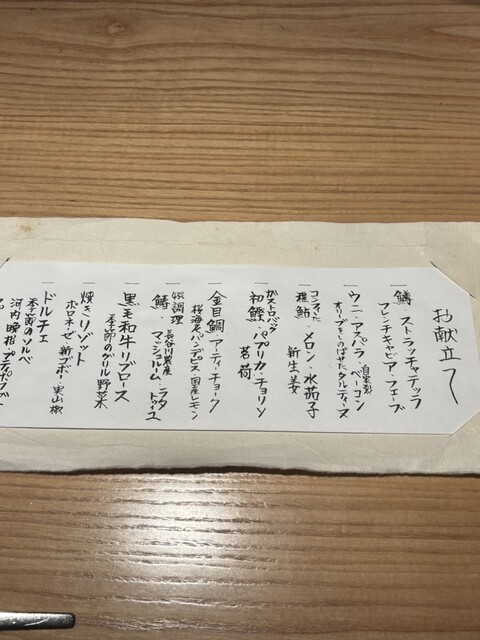 お献立て
一 鱚、ストラッチャテッラ
フレンチキャビア、フェーブ
一 ウニ、アスパラ、自家製ベーコン
オリーブをしのばせたタルティーヌ
一 コンフィした稚鮎、メロン、水茄子
新生姜
一 ガストロバック初鰹、パプリカ、チョリソ
茗荷
一 金目鯛 アーティチョーク
桜海老、パンデピス、国産レモン
一 鰆 長谷川農産
マッシュルーム、ラタトゥイユ
一 黒毛和牛リブロース
季節のグリル野菜
一 焼きリゾット
ボロネーゼ 新ゴボー、実山椒
一 ドルチェ
季節のソルベ
河内晩柑